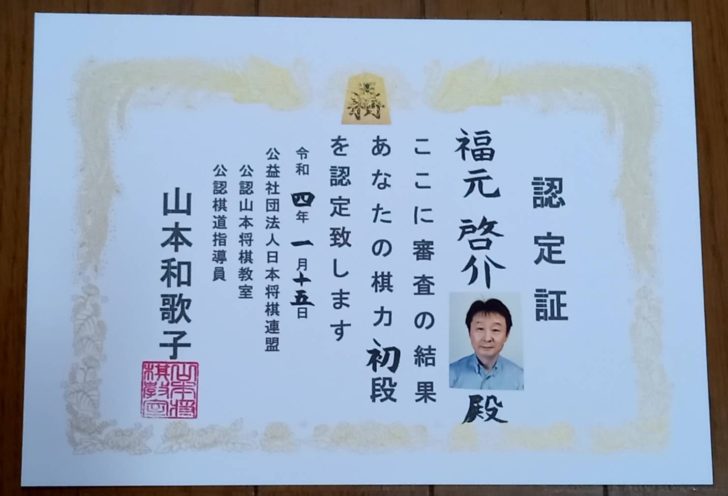 認定証
福元 啓介 殿
ここに審査の結果
あなたの棋力 初段
を認定致します
令和 四年 一月十五日
公益社団法人日本将棋連盟
公認山本将棋教室
公認棋道指導員
山本和歌子